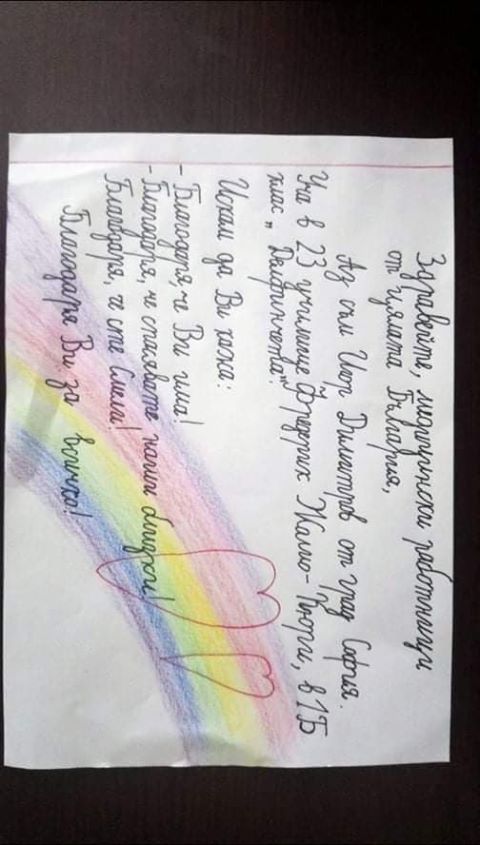 Здравейте, медицински работници
от цялата България,
Аз съм Иор Димитров от град София.
Уча в 23 училище Фредерик Жолио-Кюри, в 1Б
клас „Делфинчета“.
Искам да Ви кажа:
- Благодаря, че Ви има!
- Благодаря, че спасявате нашите близки!
Благодаря, че сте Смели!
Благодаря Ви за всичко!